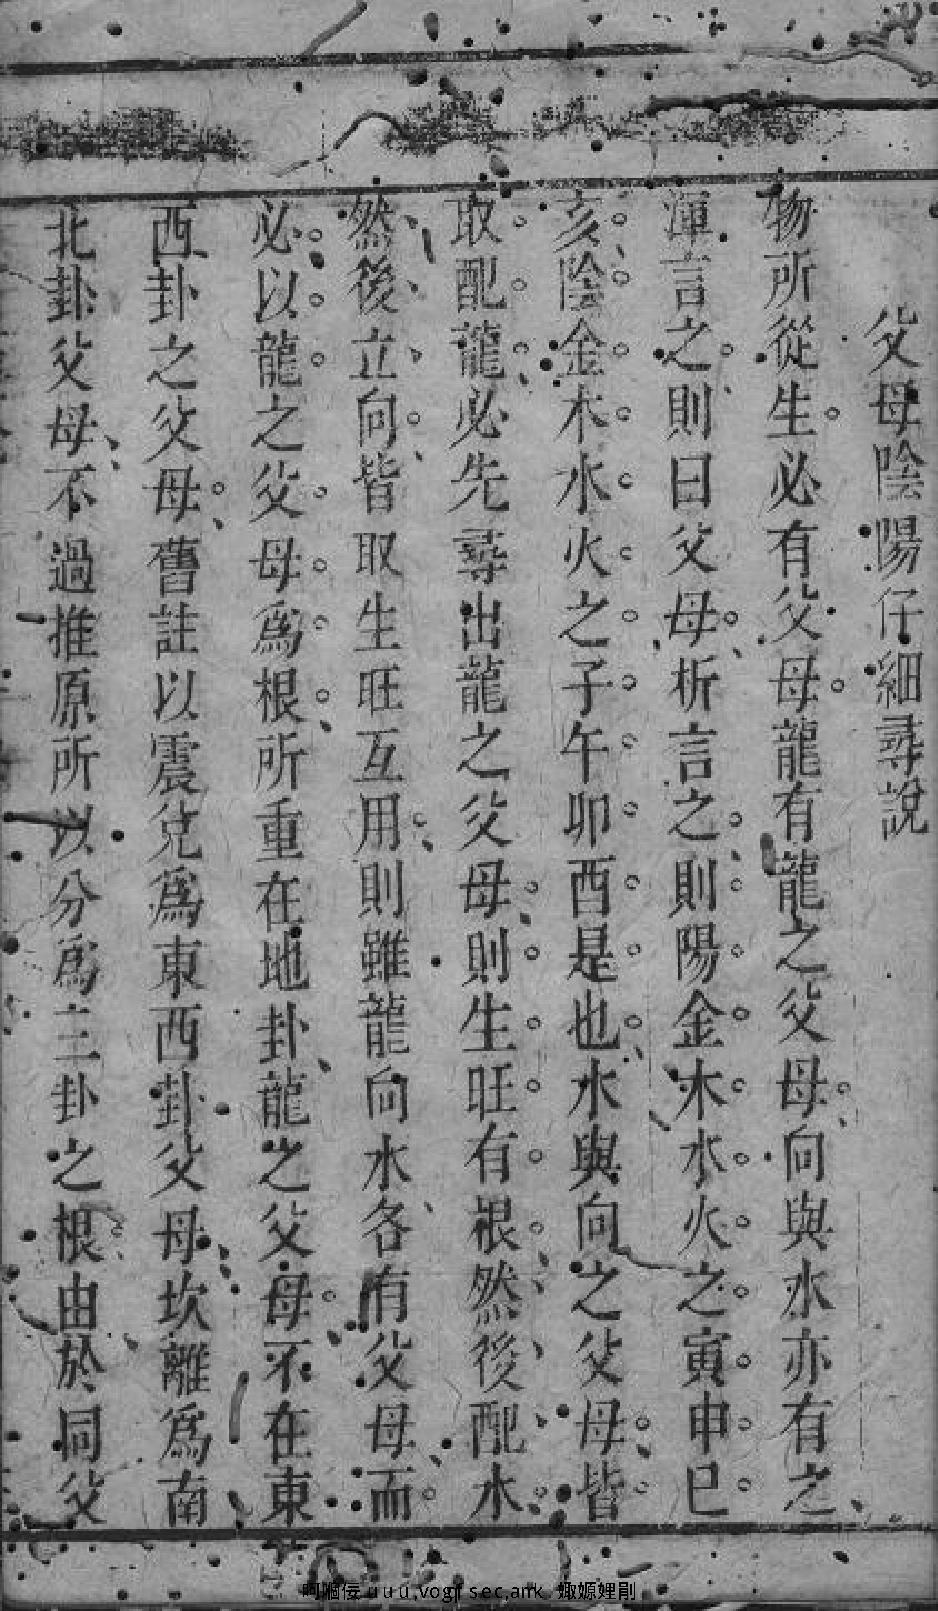 父母陰陽仔細尋說
物所從生必有父母龍有龍之父母向與水亦有之
渾言之則曰父母析言之則陽金木水火之寅申巳
亥陰金木水火之子午卯酉是也水與向之父母皆
取配龍必先尋出龍之父母則生旺有根然後配水
然後立向皆取生旺互用則雖龍向水各有父母而
必以龍之父母爲根所重在地卦龍之父母不在東
西卦之父母舊註以震兌爲東西卦父母坎離爲南
北卦父母不過推原所以分爲三卦之根由於同父